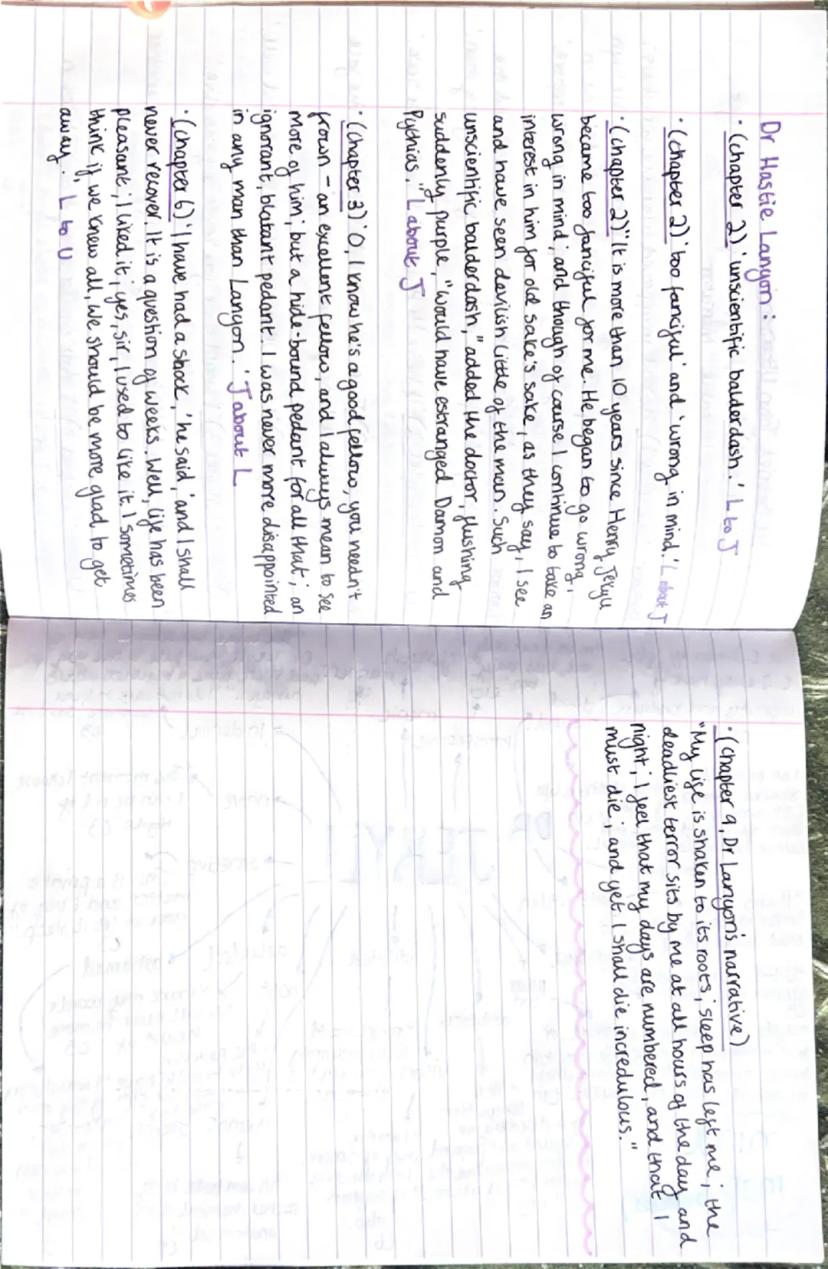 Dr Hastie Lanyon:
· (chapter 2) 'unscientific balderdash.' L to J
· (chapter 2) 'too fanciful' and 'wrong in mind.' L about J
· (chapter 2) "It is more than 10 years since Henry Jekyll
became too fanciful for me. He began to go wrong,
wrong in mind; and though of course I continue to take an
interest in him for old sake's sake, as they say, I see
and have seen devilish little of the man. Such
unscientific balderdash," added the doctor, flushing
suddenly purple, "would have estranged Damon and
Pythias." L about J
· (chapter 3) 'O, I know he's a good fellow, you needn't
frown – an excellent fellow, and I always mean to see
more of him; but a hide-bound pedant for all that; an
ignorant, blatant pedant. I was never more disappointed
in any man than Lanyon.' J about L
· (chapter 6) 'I have had a shock,' he said, 'and I shall
never recover. It is a question of weeks. Well, life has been
pleasant; I liked it; yes, sir, I used to like it. I sometimes
think if we knew all, we should be more glad to get
away.' L to U
· (chapter 9, Dr Lanyon's narrative)
"My life is shaken to its roots; sleep has left me; the
deadliest terror sits by me at all hours of the day and
night; I feel that my days are numbered, and that I
must die; and yet I shall die incredulous."